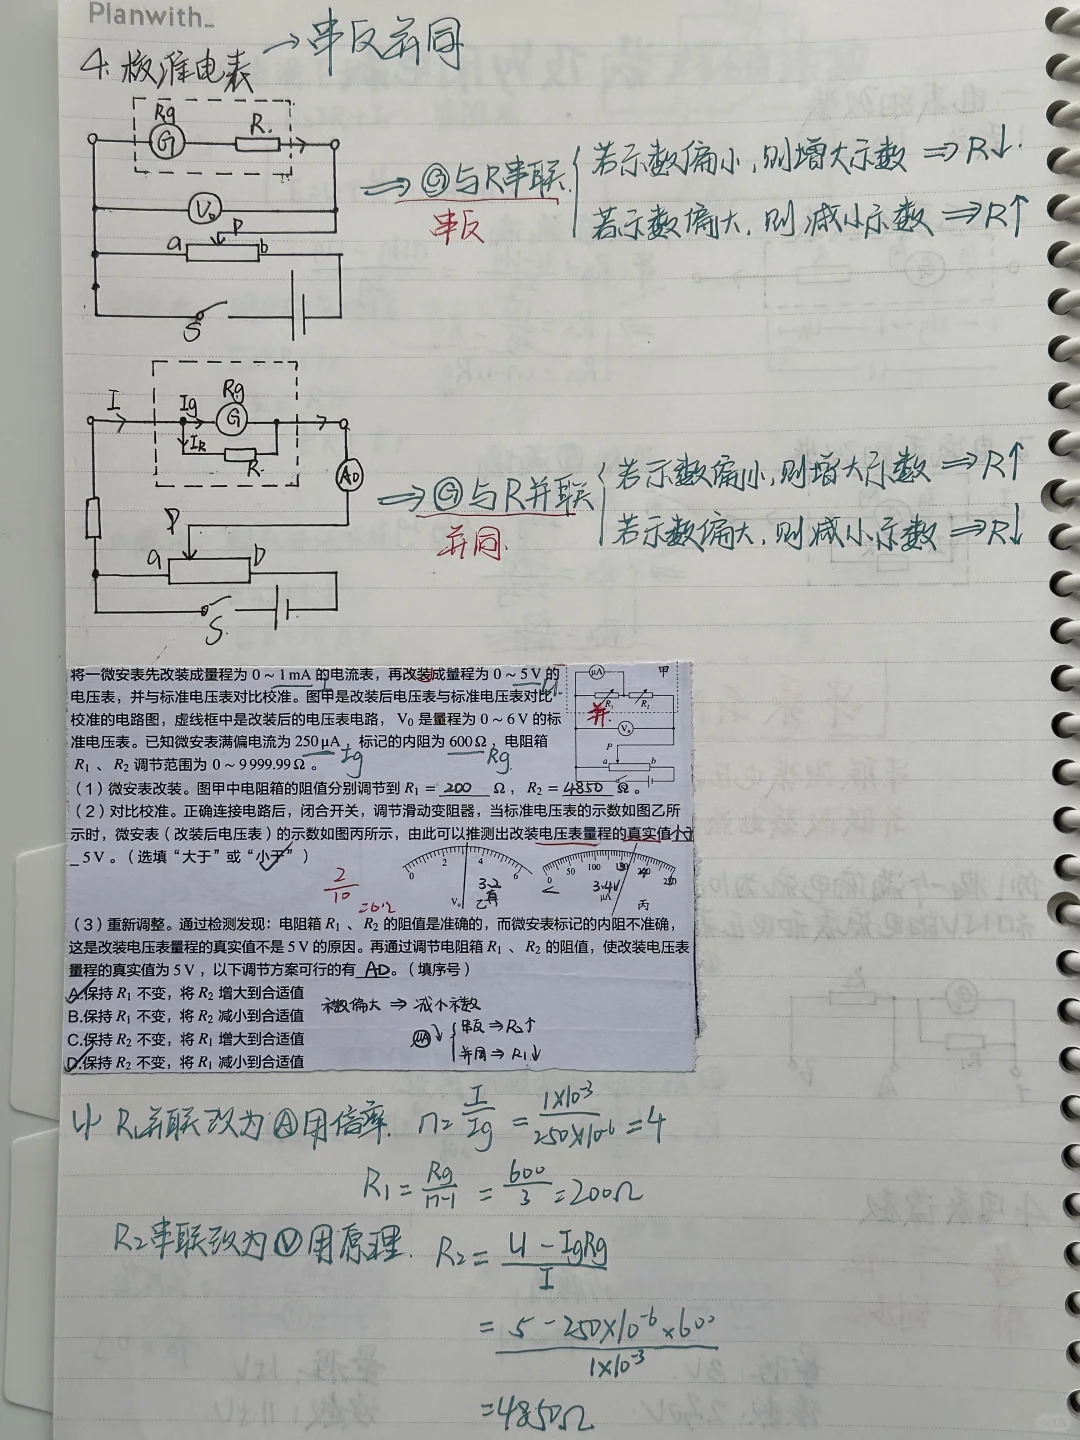 Planwith...
4. 校准电表 → 串反并同
Rg
G R.
V₀
P
a b
S
⇒ Ⓖ与R串联
串反
若示数偏小,则增大示数 ⇒ R↓.
若示数偏大,则减小示数 ⇒ R↑
I Ig Rg
G
IR
R
A0
P
a D
S.
⇒ Ⓖ与R并联
并同.
若示数偏小,则增大示数 ⇒ R↑
若示数偏大,则减小示数 ⇒ R↓
将一微安表先改装成量程为 0~1 mA 的电流表,再改装成量程为 0~5 V 的
电压表,并与标准电压表对比校准。图甲是改装后电压表与标准电压表对比
校准的电路图,虚线框中是改装后的电压表电路, V₀ 是量程为 0~6 V 的标
准电压表。已知微安表满偏电流为 250 μA,标记的内阻为 600 Ω,电阻箱
Ig Rg
R₁ 、 R₂ 调节范围为 0~9 999.99 Ω 。
μA 甲
R₁ R₂
并
V₀
P
a b
(1)微安表改装。图甲中电阻箱的阻值分别调节到 R₁ = 200 Ω, R₂ = 4850 Ω。
(2)对比校准。正确连接电路后,闭合开关,调节滑动变阻器,当标准电压表的示数如图乙所
示时,微安表(改装后电压表)的示数如图丙所示,由此可以推测出改装电压表量程的真实值小于
5 V 。(选填“大于”或“小于”)
0 2 4 6
V₀ 乙
3.2
真
0 50 100 150 200 250
3.4V
μA 丙
2/10
(3)重新调整。通过检测发现:电阻箱 R₁ 、 R₂ 的阻值是准确的,而微安表标记的内阻不准确,
这是改装电压表量程的真实值不是 5 V 的原因。再通过调节电阻箱 R₁ 、 R₂ 的阻值,使改装电压表
量程的真实值为 5 V ,以下调节方案可行的有 AD 。(填序号)
A.保持 R₁ 不变,将 R₂ 增大到合适值
B.保持 R₁ 不变,将 R₂ 减小到合适值
C.保持 R₂ 不变,将 R₁ 增大到合适值
D.保持 R₂ 不变,将 R₁ 减小到合适值
示数偏大 ⇒ 减小示数
μA↓ 串反 ⇒ R₂↑
并同 ⇒ R₁↓
(1) R₁并联改为Ⓐ用倍率. n = I/Ig = 1×10⁻³/250×10⁻⁶ = 4
R₁ = Rg/n-1 = 600/3 = 200Ω
R₂串联改为Ⓥ用原理. R₂ = U - IgRg/I
= 5 - 250×10⁻⁶×600/1×10⁻³
= 4850Ω